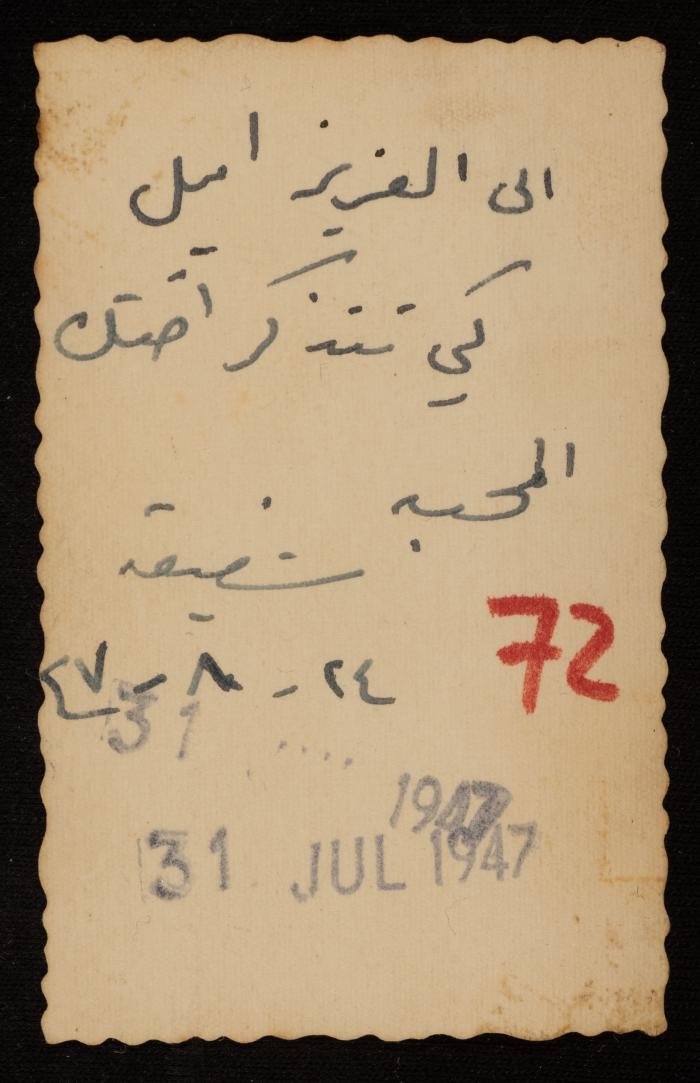 الى العزيز اميل
كي تتذكر اختك
المحبه
شفيقه
٢٤ - ٨ - ٤٧
72
31
1947
31 JUL 1947